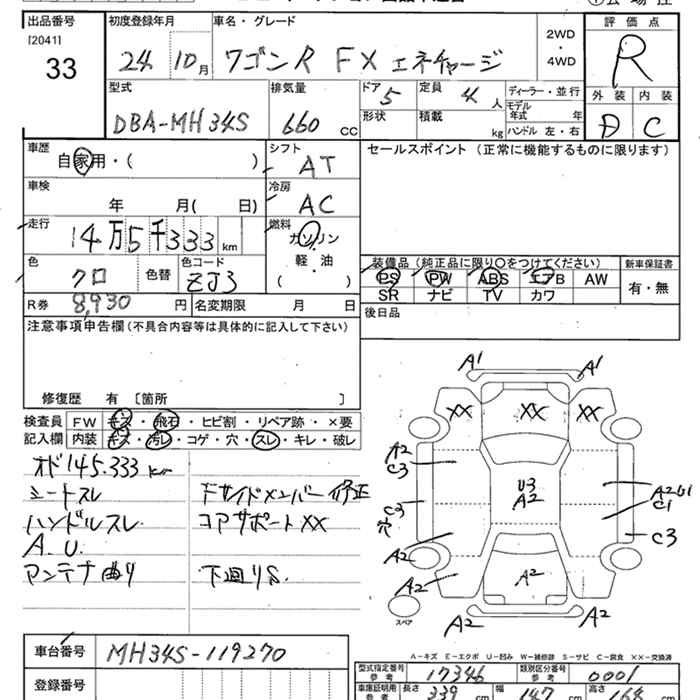 出品番号 初度登録年月 車名・グレード 評価点
[2041]
33 24 10月 ワゴンR FX エネチャージ 2WD・4WD R
型式 排気量 ドア 5 定員 4人 ディーラー・並行 外装 内装
DBA-MH34S 660 CC 形状 積載 kg モデル年式 年 D C
ハンドル 左・右
車歴 シフト セールスポイント (正常に機能するものに限ります)
自家用・( ) AT
車検 冷房
年 月( 日) AC
走行 燃料
14万5千333km ガソリン
軽・油
( )
色 クロ 色替 色コード ZJ3
装備品 (純正品に限り○をつけてください) 新車保証書
PS PW ABS エアB AW 有・無
SR ナビ TV カワ
R券 8,930円 名変期限 月 日
後日品
注意事項申告欄(不具合内容等は具体的に記入して下さい)
修復歴 有 [箇所 ]
検査員 FW キズ・飛石・ヒビ割・リペア跡・×要
記入欄 内装 キズ・汚レ・コゲ・穴・スレ・キレ・破レ
オド145.333km
シートスレ Fサイドメンバー修正
ハンドルスレ コアサポートXX
A.U.
アンテナ曲り 下廻りS.
A1 A1
XX XX XX
A2
C3
U3
A2
A2U1
C1
C3
穴
C3
A2
A2 A2
スペア
A2 A2
A−キズ E−エクボ U−凹み W−補修跡 S−サビ C−腐食 XX−交換済
車台番号 MH34S-119270
型式指定番号 参考 17346 類別区分番号 参考 0001
登録番号
車庫証明用 参考 長さ 339cm 幅 147cm 高さ cm